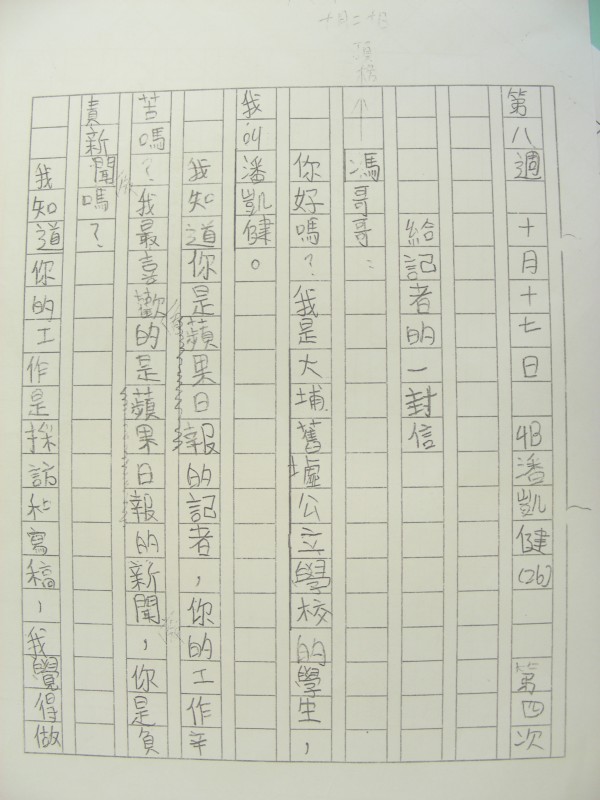 十月二十日
頂格
第八週 十月十七日 4B潘凱健(26) 第四次
給記者的一封信
馮哥哥：
你好嗎？我是大埔舊墟公立學校的學生，
我叫潘凱健。
我知道你是蘋果日報的記者，你的工作辛
苦嗎？我最喜歡的是蘋果日報的新聞，你是負
責新聞嗎？
我知道你的工作是採訪和寫稿，我覺得做